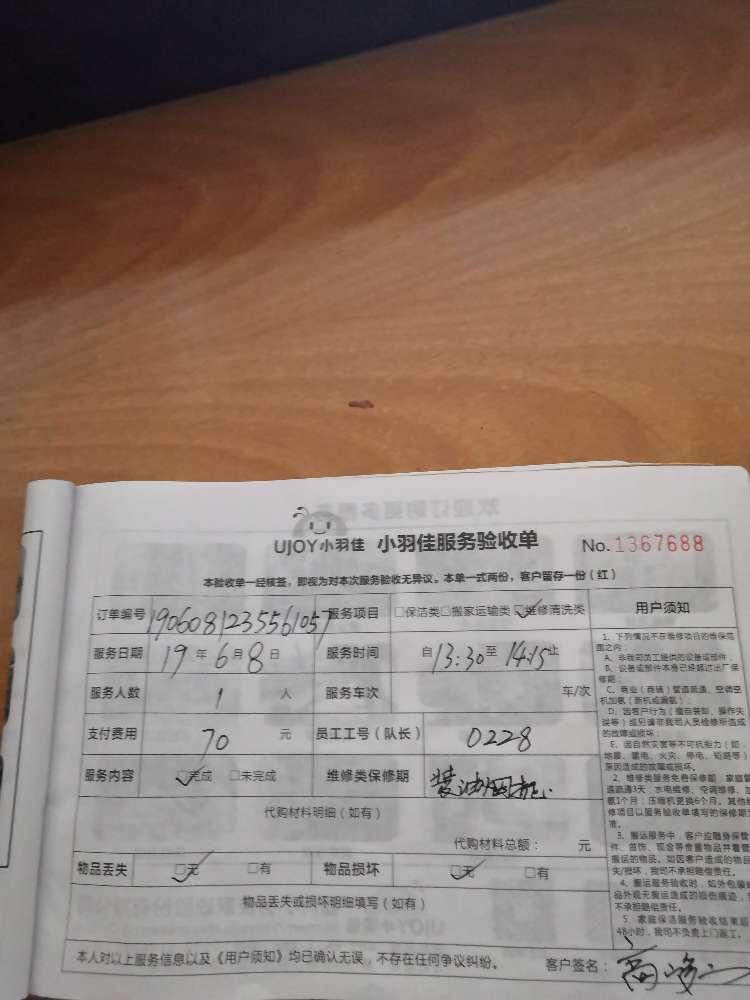 UJOY小羽佳 小羽佳服务验收单
No.1367688
本验收单一经核签，即视为对本次服务验收无异议。本单一式两份，客户留存一份（红）
订单编号 1906081235561057 服务项目 □保洁类□搬家运输类☑维修清洗类
服务日期 19年6月8日 服务时间 自13:30至14:15止
服务人数 1 人 服务车次 车/次
支付费用 70 元 员工工号（队长） 0228
服务内容 ☑完成 □未完成 维修类保修期
代购材料明细（如有）
代购材料总额： 元
物品丢失 ☑无 □有 物品损坏 ☑无 □有
物品丢失或损坏明细填写（如有）
本人对以上服务信息以及《用户须知》均已确认无误，不存在任何争议纠纷。 客户签名：
用户须知
1、下列情况不在维修项目的维保范
围之内：
A、非我司员工提供的设备或部件；
B、设备或部件本身已经超过出厂保
修期；
C、商业（商铺）管道疏通、空调空
机加氨（新机或漏氨）；
D、因客户行为（擅自装卸、操作失
误等）或另请非我司人员检修所造成
的故障或损坏；
E、因自然灾害等不可抗拒力（如
地震、雷电、火灾、停电、短路等）
原因造成的故障或损坏。
2、维修类服务免费保修期：家庭管
道疏通3天；水电维修、空调维修、加
氨1个月；压缩机更换6个月。其他维
修项目以服务验收单填写的保修期为
准。
3、搬运服务中，客户应随身保管
件、首饰、现金等贵重物品并看管
搬运的物品。如因客户造成的物品
失/损坏，我司不承担赔偿责任。
4、搬运服务验收时，如外包装
品外观无搬运造成的损伤痕迹，
不承担赔偿责任。
5、家庭保洁服务验收结束后
48小时，我司不负责上门返工。